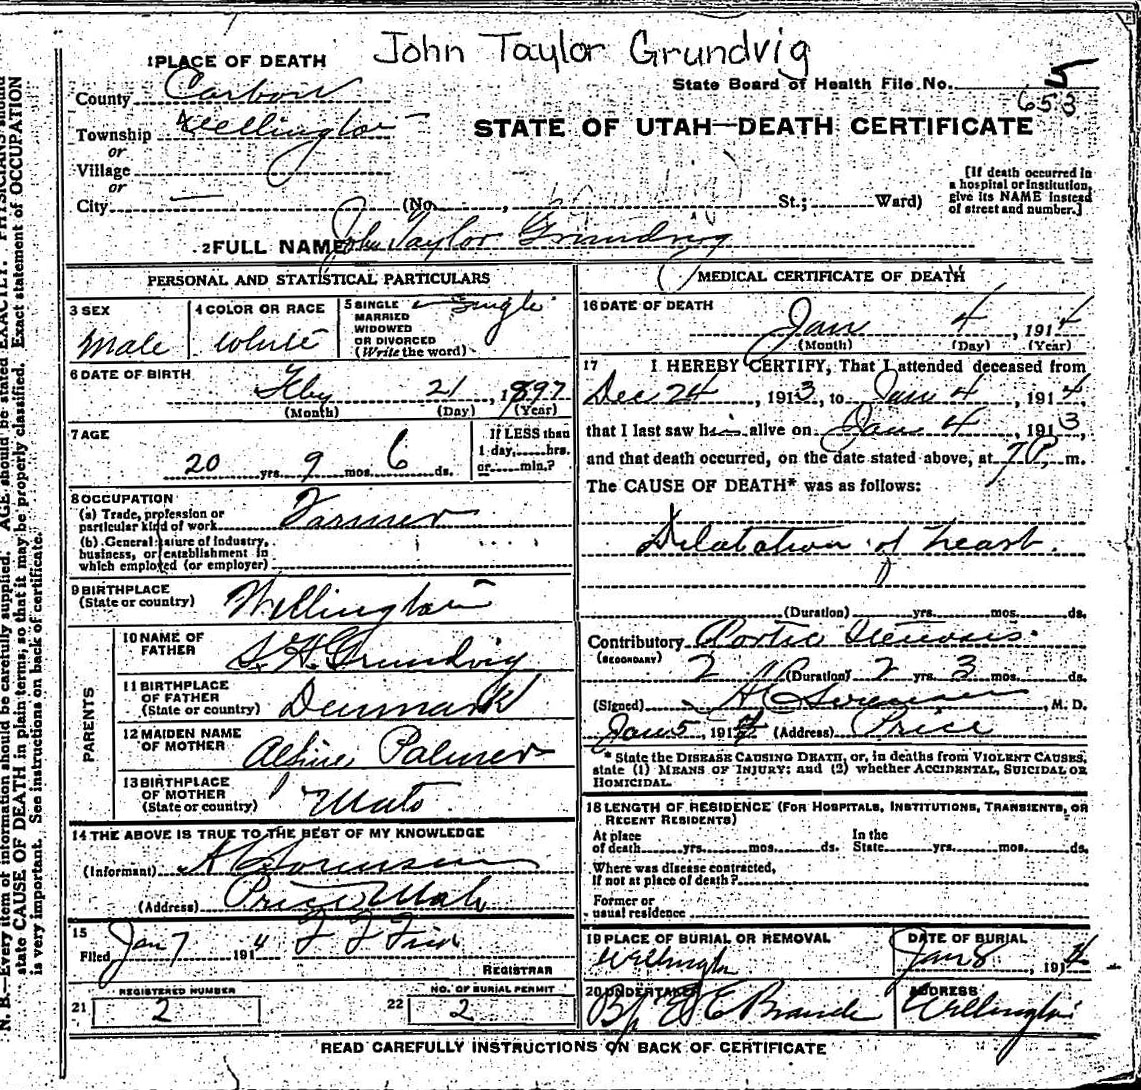 John Taylor Grundvig
1 PLACE OF DEATH
State Board of Health File No. 5
653
County Carbon
Township Wellington
or
Village
or
City
STATE OF UTAH—DEATH CERTIFICATE
(No. , St.; Ward)
[If death occurred in
a hospital or institution,
give its NAME instead
of street and number.]
2 FULL NAME John Taylor Grundvig
PERSONAL AND STATISTICAL PARTICULARS
3 SEX
Male
4 COLOR OR RACE
White
5 SINGLE
MARRIED
WIDOWED
OR DIVORCED
(Write the word)
Single
6 DATE OF BIRTH
Feby 21, 1897
(Month) (Day) (Year)
7 AGE
20 yrs. 9 mos. 6 ds.
If LESS than
1 day, hrs.
or min.?
8 OCCUPATION
(a) Trade, profession or
particular kind of work Farmer
(b) General nature of industry,
business, or establishment in
which employed (or employer)
9 BIRTHPLACE
(State or country) Wellington
PARENTS
10 NAME OF
FATHER S. H. Grundvig
11 BIRTHPLACE
OF FATHER
(State or country) Denmark
12 MAIDEN NAME
OF MOTHER Palmer
13 BIRTHPLACE
OF MOTHER
(State or country) Utah
14 THE ABOVE IS TRUE TO THE BEST OF MY KNOWLEDGE
(Informant) H C Sorensen
(Address) Price Utah
15
Filed Jan 7 1914
REGISTRAR
21 REGISTERED NUMBER
2
22 NO. OF BURIAL PERMIT
2
MEDICAL CERTIFICATE OF DEATH
16 DATE OF DEATH
Jan 4, 1914
(Month) (Day) (Year)
17 I HEREBY CERTIFY, That I attended deceased from
Dec 24, 1913, to Jan 4, 1914,
that I last saw him alive on Jan 4, 1913,
and that death occurred, on the date stated above, at 7 P. m.
The CAUSE OF DEATH* was as follows:
Dilatation of heart.
(Duration) yrs. mos. ds.
Contributory Aortic Stenosis.
(SECONDARY)
2 (Duration) 2 yrs 3 mos. ds.
(Signed) H C Sorensen, M. D.
Jan 5, 1914 (Address) Price
* State the DISEASE CAUSING DEATH, or, in deaths from VIOLENT CAUSES,
state (1) MEANS OF INJURY; and (2) whether ACCIDENTAL, SUICIDAL OR
HOMICIDAL.
18 LENGTH OF RESIDENCE (FOR HOSPITALS, INSTITUTIONS, TRANSIENTS, OR
RECENT RESIDENTS)
At place
of death yrs. mos. ds.
In the
State yrs. mos. ds.
Where was disease contracted,
If not at place of death?
Former or
usual residence
19 PLACE OF BURIAL OR REMOVAL
Wellington
DATE OF BURIAL
Jan 8, 1914
20 UNDERTAKER
ADDRESS
Wellington
READ CAREFULLY INSTRUCTIONS ON BACK OF CERTIFICATE
N. B.—Every item of information should be carefully supplied. AGE should be stated EXACTLY. PHYSICIANS should
state CAUSE OF DEATH in plain terms, so that it may be properly classified. Exact statement of OCCUPATION
is very important. See instructions on back of certificate.